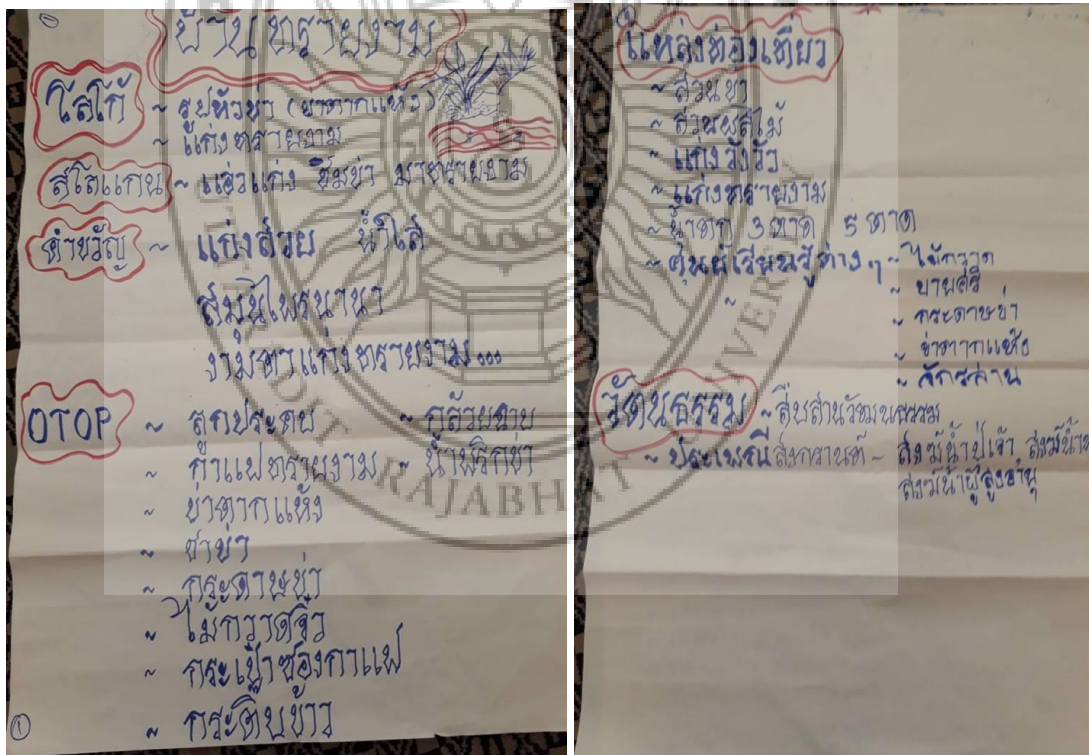 บ้านทรายงาม
โลโก้ ~ รูปหัวข่า (ข่าตากแห้ง)
~ แก่งทรายงาม
สโลแกน ~ แอ่วแก่ง ชิมข่า มาทรายงาม
คำขวัญ ~ แก่งสวย น้ำใส
สมุนไพรนานา
งามตาแก่งทรายงาม...
OTOP ~ ลูกประคบ ~ กล้วยฉาบ
~ กาแฟทรายงาม ~ น้ำพริกข่า
~ ข่าตากแห้ง
~ ชาข่า
~ กระดาษข่า
~ ไม้กวาดจิ๋ว
~ กระเป๋าซองกาแฟ
~ กระติบข้าว
①
แหล่งท่องเที่ยว
~ สวนข่า
~ สวนผลไม้
~ แก่งวังวัว
~ แก่งทรายงาม
~ น้ำตก 3 ตาด 5 ตาด
~ ศูนย์เรียนรู้ต่างๆ ~ ไม้กวาด
~ บายศรี
~ กระดาษข่า
~ ข่าตากแห้ง
~ จักรสาน
วัฒนธรรม ~ สืบสานวัฒนธรรม
~ ประเพณีสงกรานต์ ~ สงฆ์น้ำปู่เจ้า สงฆ์น้ำ
สงฆ์น้ำผู้สูงอายุ
RAJABHAT